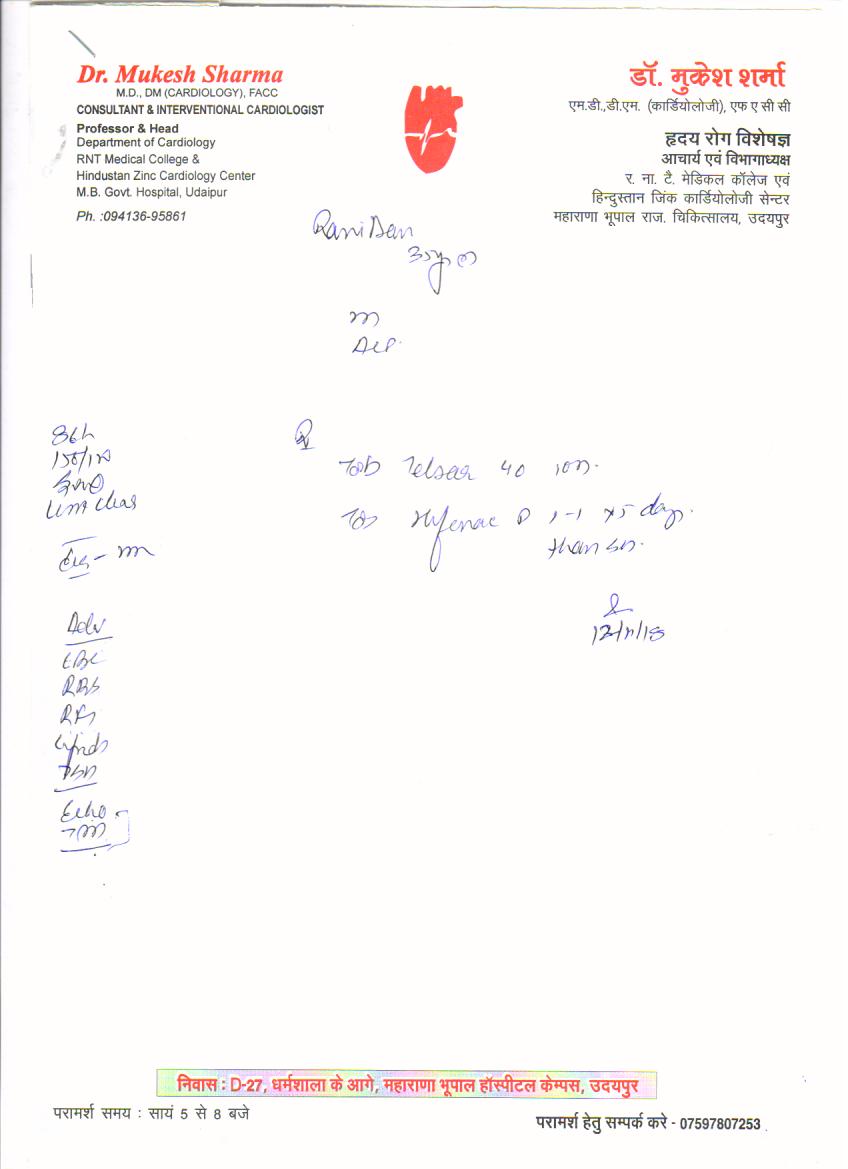 Dr. Mukesh Sharma
M.D., DM (CARDIOLOGY), FACC
CONSULTANT & INTERVENTIONAL CARDIOLOGIST
Professor & Head
Department of Cardiology
RNT Medical College &
Hindustan Zinc Cardiology Center
M.B. Govt. Hospital, Udaipur
Ph. :094136-95861
डॉ. मुकेश शर्मा
एम.डी.,डी.एम. (कार्डियोलोजी), एफ ए सी सी
हृदय रोग विशेषज्ञ
आचार्य एवं विभागाध्यक्ष
र. ना. टै. मेडिकल कॉलेज एवं
हिन्दुस्तान जिंक कार्डियोलोजी सेन्टर
महाराणा भूपाल राज. चिकित्सालय, उदयपुर
Rani Dan
M
Rx
Tab Telsar 40
Tab Hifenac P 1-1 x5 day
than
Adv
CBC
RBS
RFT
Lipids
TSH
Echo
निवास : D-27, धर्मशाला के आगे, महाराणा भूपाल हॉस्पीटल केम्पस, उदयपुर
परामर्श समय : सायं 5 से 8 बजे
परामर्श हेतु सम्पर्क करे - 07597807253